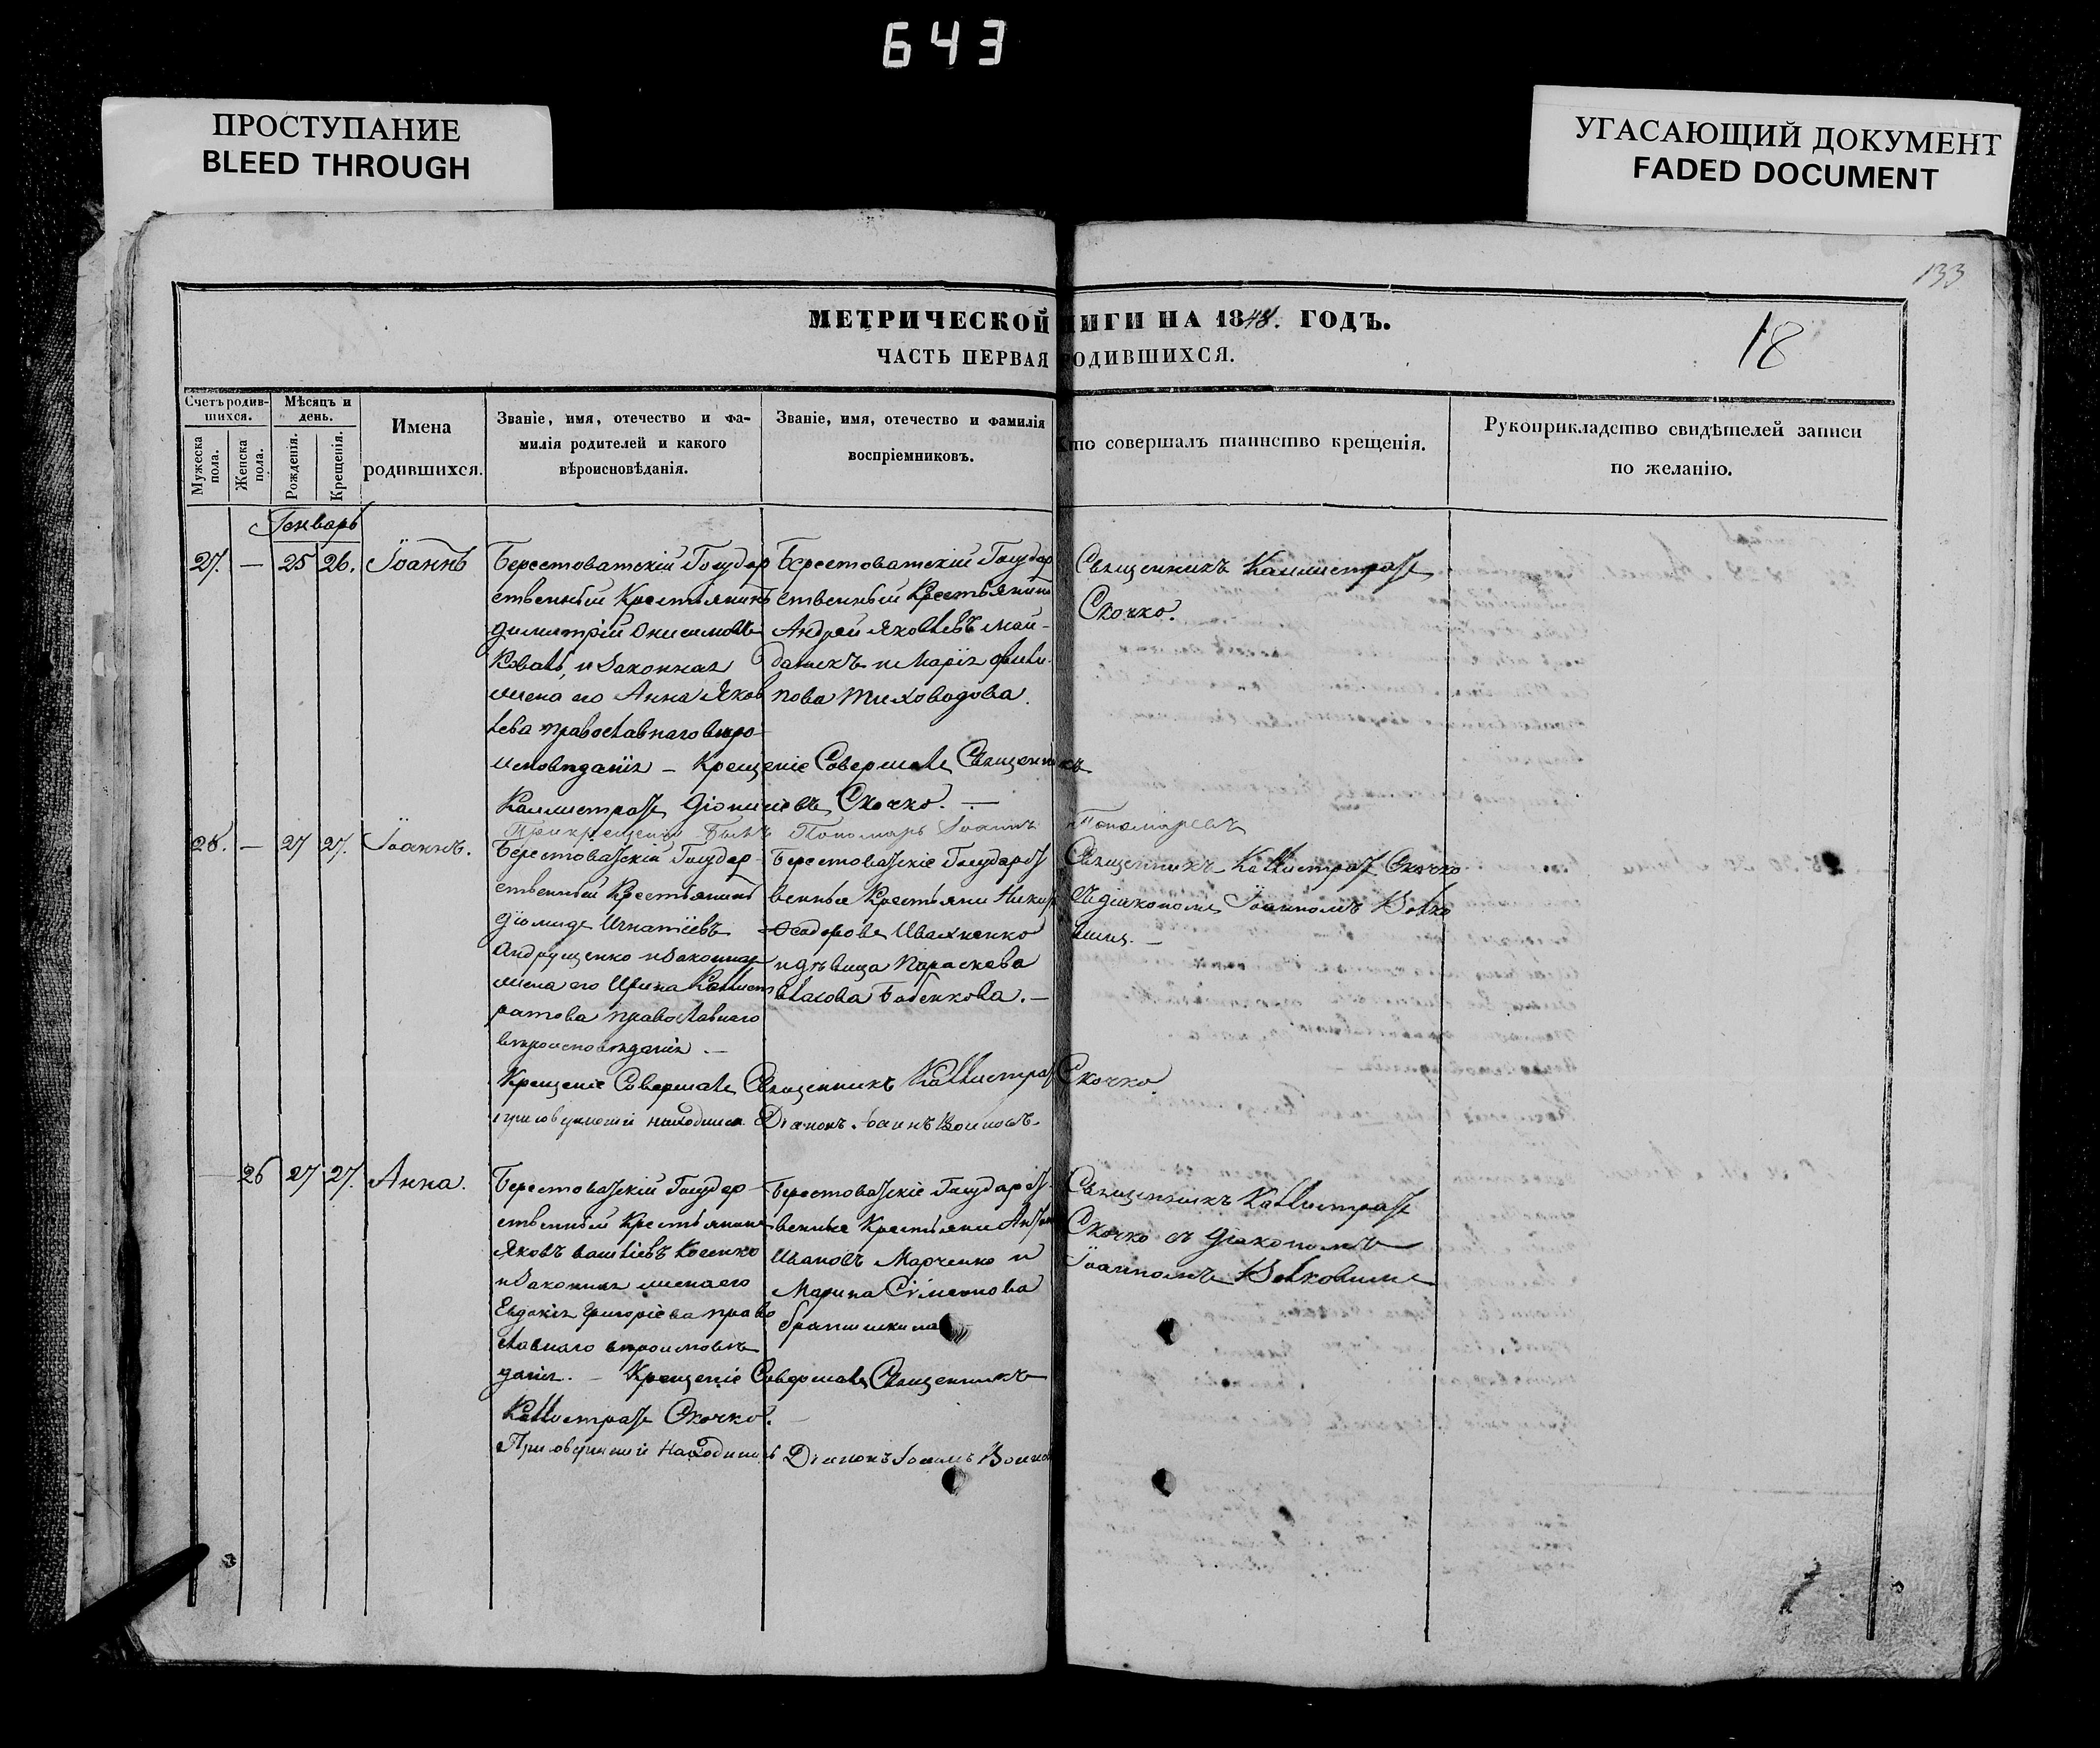 643
ПРОСТУПАНИЕ
BLEED THROUGH
УГАСАЮЩИЙ ДОКУМЕНТ
FADED DOCUMENT
133
МЕТРИЧЕСКОЙ КНИГИ НА 1848. ГОДЪ.
18
ЧАСТЬ ПЕРВАЯ РОДИВШИХСЯ.
Счетъ родив-
шихся.
Мужеска пола.
Женска пола.
Мѣсяцъ и
день.
Рожденія.
Крещенія.
Имена
родившихся.
Званіе, имя, отечество и фа-
милія родителей и какого
вѣроисповѣданія.
Званіе, имя, отечество и фамилія
воспріемниковъ.
Кто совершалъ таинство крещенія.
Рукоприкладство свидѣтелей записи
по желанію.
Генварь
27. — 25 26. Іоаннъ
Берестоватскій Государ
ственный Крестьянинъ
Димитрій Онисимовъ
Коваль, и Законная
жена его Анна Яков
лева православнаго вѣро
исповѣданія — Крещеніе Совершалъ Священникъ
Каллистратъ Діонисіовъ Скочко. —
При крещеніи былъ Пономарь Іоаннъ Пономаревъ
Берестоватскій Государ
ственный Крестьянинъ
Андрей Яковлевъ май-
даникъ и Марія Филип
пова Тиховодова.
Священникъ Каллистратъ
Скочко.
28. — 27 27. Іоаннъ.
Берестоватскій Государ
ственный Крестьянинъ
Діомидъ Игнатіевъ
Андрущенко и Законная
жена его Ирина Каллист
ратова православнаго
вѣроисповѣданія. —
Крещеніе Совершалъ Священникъ Каллистратъ Скочко.
находился Діаконъ Іоаннъ
Берестоватскіе Государст
венные Крестьяни
Феодоровъ Ивахненко
и дѣвица Параскева
Власова Бабенкова. —
Священникъ Каллистратъ Скочко
съ діакономъ Іоанномъ Волко
вимъ. —
26 27 27. Анна.
Берестоватскій Государ
ственный Крестьянинъ
Яковъ Косенко
и Законная жена его
Евдокія Григоріева право
славнаго вѣроисповѣ
данія. — Крещеніе Совершалъ Священникъ
Каллистратъ Скочко.
Діаконъ Іоаннъ
Берестоватскіе Государст
венные Крестьяни Антон
Ивановъ Марченко и
Марина Сімеонова
Священникъ Каллистратъ
Скочко съ Діакономъ
Іоанномъ Волковимъ